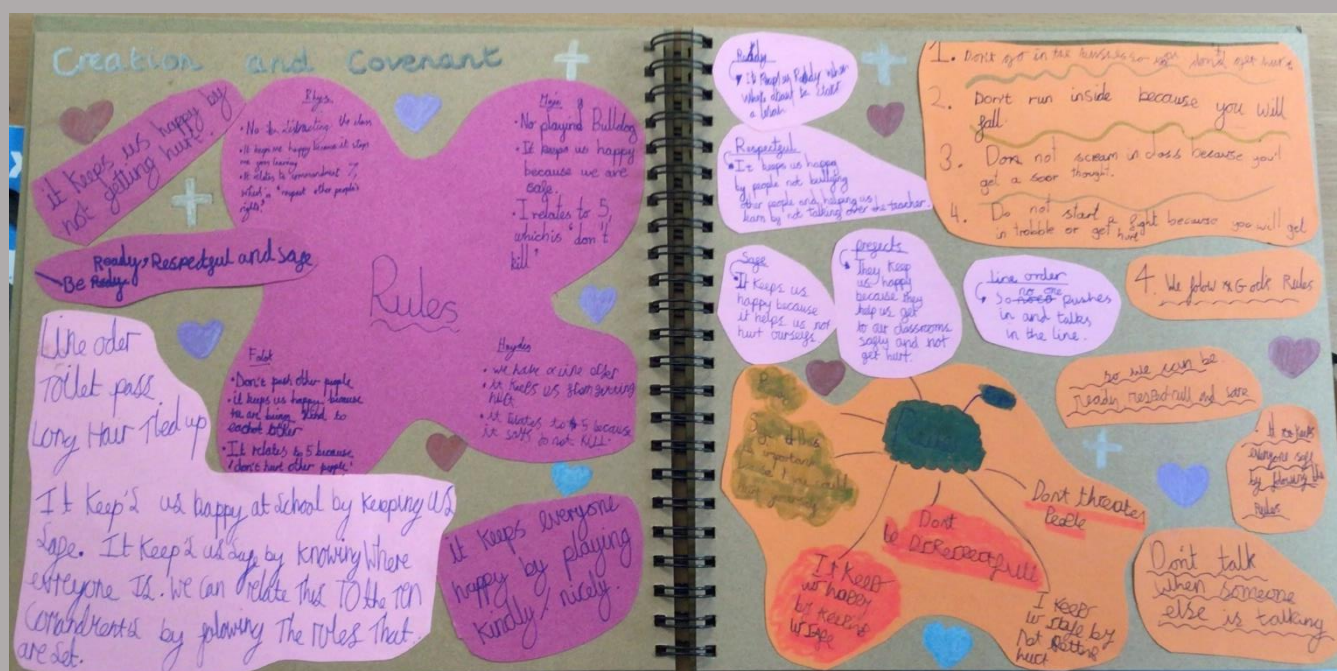 Creation and Covenant
it keeps us happy by
not getting hurt.
Rhys
• No distracting the class
• It keeps me happy because it stops
me you learning
• It relates to commandment 7,
which is "respect other people's
rights"
Maja
• No playind Bulldog
• It keeps us happy
because we are
safe.
• I relates to 5,
which is "don't
kill"
Ready, Respectful and Safe
Be
Rules
• Don't push other people
• it keeps us happy because
we are being kind to
eachot other
• It relates to 5 because
"don't hurt other people"
Hayden
• we have a line order
• it keeps us from getting
hurt
• it relates to 5 because
it says do not kill.
Line oder
Toilet pass
Long Hair Tied up
It Keep's us happy at School by Keeping us
Safe. It Keep's us Safe by Knowing Where
everyone Is. We can relate this To the Ten
by folowing The rules That
are set.
it keeps everyone
happy by playing
kindly / nicely.
Ready
It keeps us Ready when
about to start
a
Respectful
It keeps us happy
by people not bullying
other people and helping us
learn by not talking over the teacher.
Safe
It keeps us
happy because
it helps us not
hurt ourselfs.
They keep
us happy
because they
help us get
to our classrooms
safly and not
get hurt.
line order
no one
So pushes
in and talks
in the line.
1. Don't go in the so you don't get hurt
2. Don't run inside because you will
fall.
3. Don not scream in class because you'll
get a soor thought.
4. Do not start a fight because you will get
in trobble or get hurt
4. We folow Gods Rules
so we can be
ready respectfull and safe
It keeps
everyone safe
by folowing the
rules
Don't talk
when someone
else is talking
is important
Dont
be Disrespectfull
Dont threaten
People
It Keep
us happy
by keeping
us safe
I keep
us safe by
Not getting
hurt